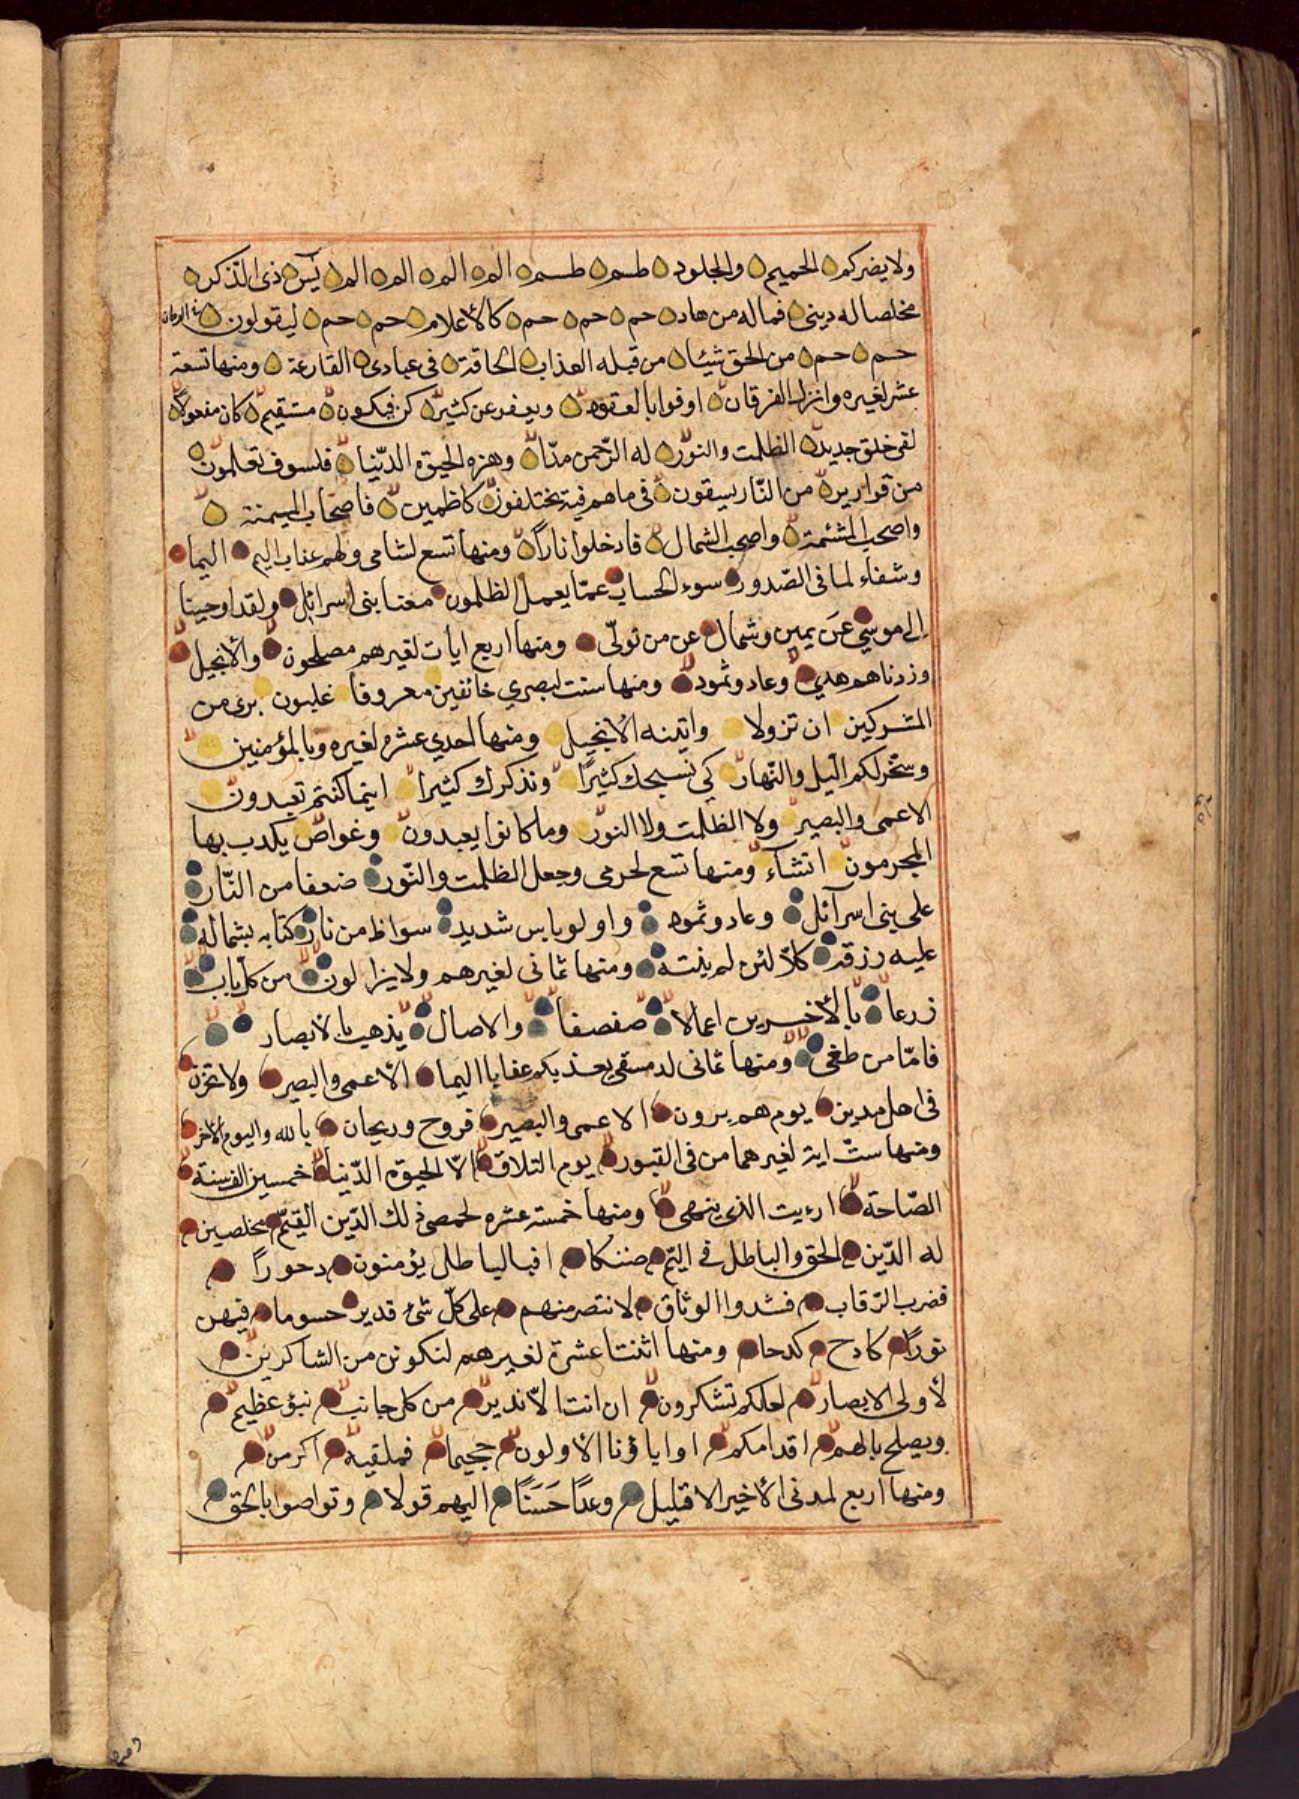 ولا يضركم الحميم والجلود طسم طسم الم الم الم الم يس ذى الذكر
مخلصا له دينى فماله من هاد حم حم حم كالأعلام حم حم ليقولون
حم حم من الحق شيئا من قبله العذاب الحاقة فى عبادى القارعة ومنها تسعة
عشر لغيره وانزل الفرقان اوفوا بالعقود ويعفو عن كثير كن فيكون مستقيم كان مفعولا
لفى خلق جديد الظلمت والنور له الرّحمن مدّا وهزه الحيوة الدّنيا فلسوف تعلمون
من قوارير من النّار يسقون فى ما هم فيه يختلفون كاظمين فاصحاب الميمنة
واصحب المشئمة واصحب الشمال فادخلوا ناراً ومنها تسع لشامى ولهم عذاب اليم اليما
وشفاء لما فى الصّدور سوء الحساب عمّا يعمل الظلمون معنا بنى اسرائل ولقد اوحينا
الى موسى عَن يمين وشمال عن من تولّى ومنها اربع ايات لغيرهم مصلحون والأنجيل
وزدناهم هدي وعاد وثمود ومنها ست لبصري خائفين معروفا غلبون برى من
المشركين ان تزولا واتينه الأنجيل ومنها احدي عشره لغيره وبالمؤمنين
وسخّر لكم اليل والنّهار كى نسبحك كثيراً ونذكرك كثيرا اينما كنتم تعبدون
الاعمى والبصير ولا الظلمت ولا النور وما كانوا يعبدون وغواص يكذب بها
المجرمون انشاء ومنها تسع لحرمى وجعل الظلمت والنّور ضعفا من النّار
على بنى اسرآئل وعاد وثموه واولو باس شديد سواظ من نار كتابه بشماله
عليه رزقه كلّا لئن لم ينته ومنها ثمانى لغيرهم ولا يزالون من كل باب
زرعا بالأخسرين اعمالا صفصفا والاصال يذهب بالأبصار
فامّا من طغى ومنها ثمانى لدمسقى يعذبكم عذابا اليما الأعمى والبصير ولا تحزن
فى اهل مدين يوم هم برون الاعمى والبصير فروح وريحان بالله واليوم الأخر
ومنها ستّ اية لغيرهما من فى القبور يوم التلاق الّا الحيوة الدّنيا خمسين الف سنة
الصّاحة ارءيت الذى ينهى ومنها خمسة عشره لحمصى ذلك الدّين القيّم مخلصين
له الدّين الحق والباطل فى اليّم ضنكا افبالباطل يؤمنون دحوراً
فضرب الرّقاب فشدوا الوثاق لانتصر منهم على كلّ شئ قدير حسوما فيهن
نوراً كادح كدحا ومنها اثنتا عشرة لغيرهم لنكونن من الشاكرين
لأولى الابصار لعلكم تشكرون ان انت الّا نذير من كل جانب نبؤ عظيم
ويصلح بالهم اقدامكم اواباؤنا الأولون جحيما فملقيه اكرمن
ومنها اربع لمدنى الأخير الا قليل وعداً حَسَنًا اليهم قولا وتواصوا بالحق